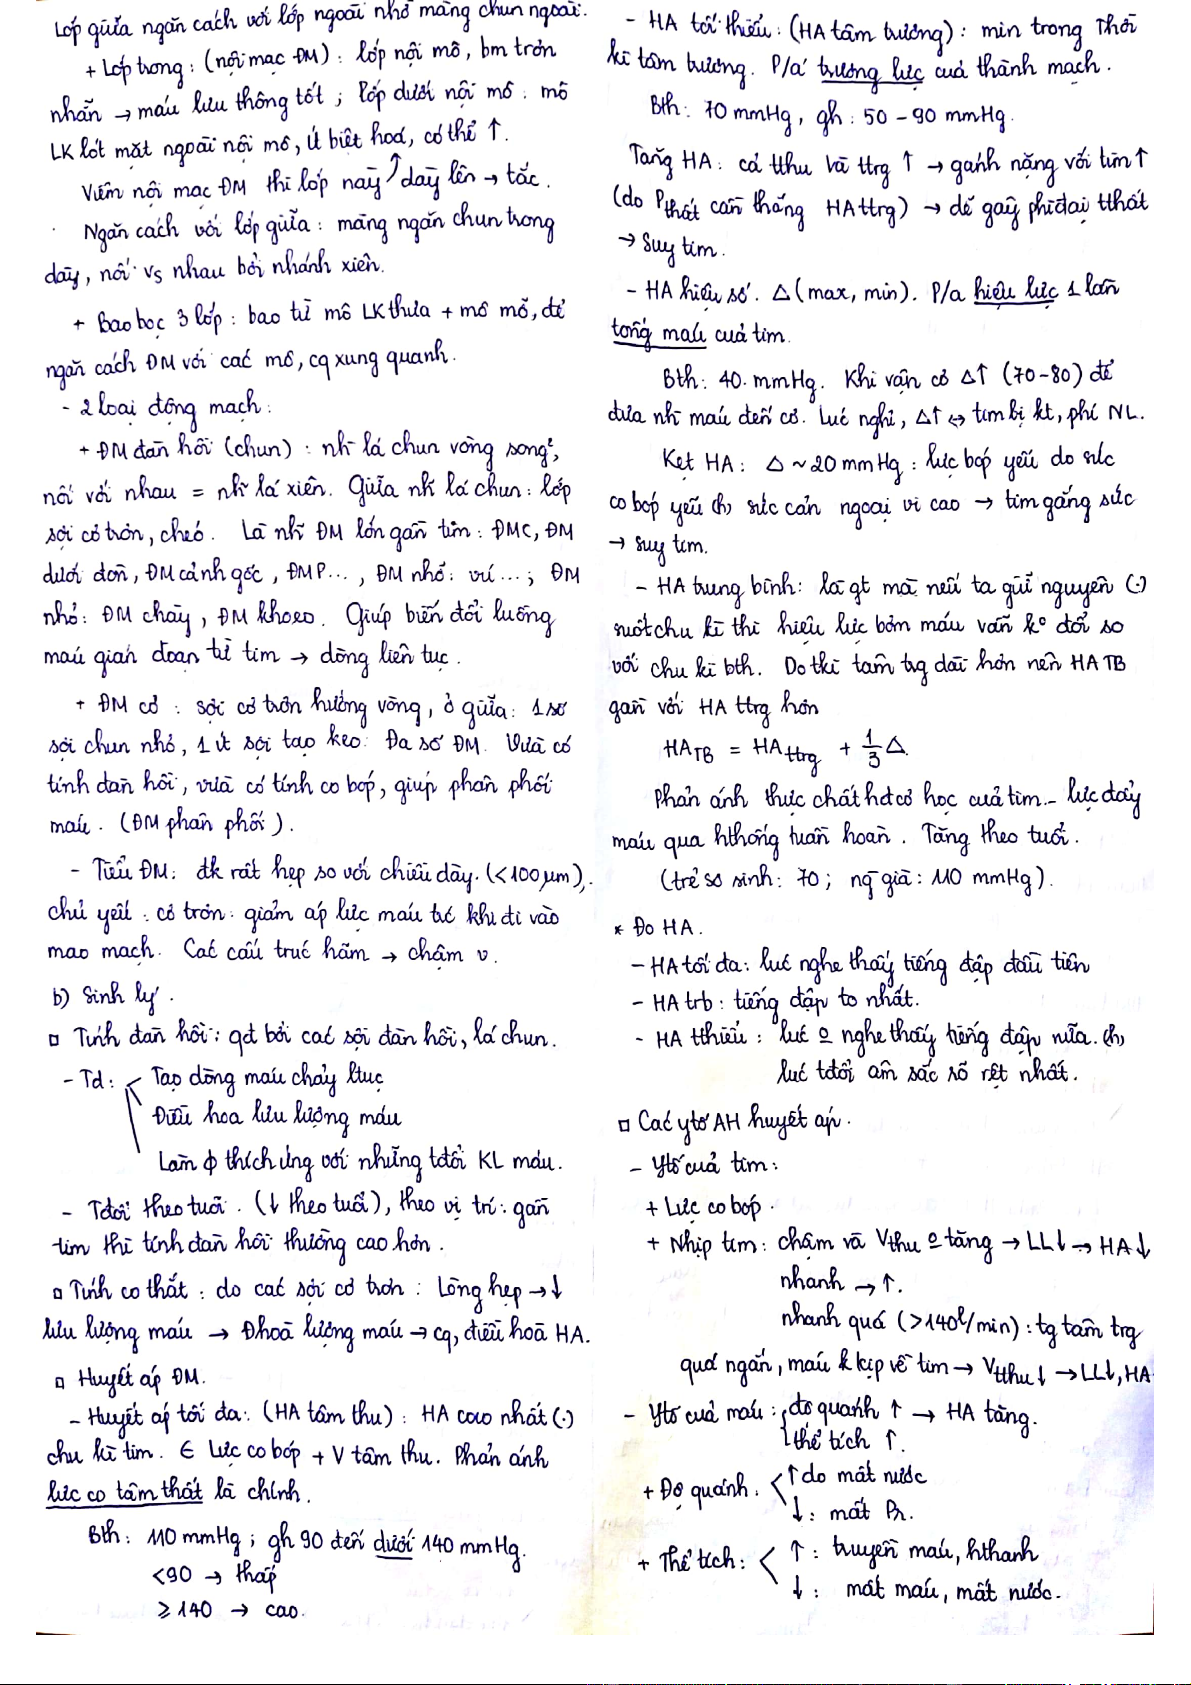 Lớp giữa ngăn cách với lớp ngoài nhờ màng chun ngoài.
+ Lớp trong: (nội mạc ĐM): lớp nội mô, bm trơn
nhẵn → máu lưu thông tốt; lớp dưới nội mô: mô
LK lót mặt ngoài nội mô, ít biệt hoá, có thể ↑.
Viêm nội mạc ĐM thì lớp này dày lên → tắc.
Ngăn cách với lớp giữa: màng ngăn chun trong
dày, nối vs nhau bởi nhánh xiên.
+ Bao bọc 3 lớp: bao từ mô LK thưa + mô mỡ, để
ngăn cách ĐM với các mô, cq xung quanh.
- 2 loại động mạch:
+ ĐM đàn hồi (chun): nh~ lá chun vòng song²,
nối với nhau = nh~ lá xiên. Giữa nh~ lá chun: lớp
sợi cơ trơn, chéo. Là nh~ ĐM lớn gần tim: ĐMC, ĐM
dưới đòn, ĐM cảnh gốc, ĐMP..., ĐM nhỏ: vú...; ĐM
nhỏ: ĐM chày, ĐM khoeo. Giúp biến đổi luồng
máu gián đoạn từ tim → dòng liên tục.
+ ĐM cơ: sợi cơ trơn hướng vòng, ở giữa: 1 số
sợi chun nhỏ, 1 ít sợi tạo keo. Đa số ĐM. Vừa có
tính đàn hồi, vừa có tính co bóp, giúp phân phối
máu. (ĐM phân phối).
- Tiểu ĐM: đk rất hẹp so với chiều dày. (<100 µm),
chủ yếu: cơ trơn: giảm áp lực máu trc khi đi vào
mao mạch. Các cấu trúc hãm → chậm v.
b) Sinh lý.
□ Tính đàn hồi: qđ bởi các sợi đàn hồi, lá chun.
- Td: Tạo dòng máu chảy ltục
Điều hoà lưu lượng máu
Làm ϕ thích ứng với những tđổi KL máu.
- Tđổi theo tuổi. (↓ theo tuổi), theo vị trí: gần
tim thì tính đàn hồi thường cao hơn.
□ Tính co thắt: do các sợi cơ trơn: Lòng hẹp → ↓
lưu lượng máu → Đhoà lượng máu → cq, điều hoà HA.
□ Huyết áp ĐM.
- Huyết áp tối đa: (HA tâm thu): HA cao nhất (.)
chu kì tim. ∈ Lực co bóp + V tâm thu. Phản ánh
lực co tâm thất là chính.
Bth: 110 mmHg; gh 90 đến dưới 140 mmHg.
<90 → thấp
≥ 140 → cao.
- HA tối thiểu: (HA tâm trương): min trong Thời
kì tâm trương. P/á trương lực của thành mạch.
Bth: 70 mmHg, gh: 50 - 90 mmHg.
Tăng HA: cả tthu và ttrg ↑ → gánh nặng với tim ↑
(do Pthất cần thắng HA ttrg) → dễ gây phì đại tthất
→ Suy tim.
- HA hiệu số. Δ (max, min). P/a hiệu lực 1 lần
tống máu của tim.
Bth: 40. mmHg. Khi vận cơ Δ↑ (70-80) để
đưa nh~ máu đến cơ. Lúc nghỉ, Δ↑ ↔ tim bị kt, phí NL.
Kẹt HA: Δ ~ 20 mmHg: lực bóp yếu do sức
co bóp yếu (h) sức cản ngoại vi cao → tim gắng sức
→ suy tim.
- HA trung bình: là gt mà nếu ta giữ nguyên (.)
suốt chu kì thì hiệu lực bơm máu vẫn k° đổi so
với chu kì bth. Do thì tâm trg dài hơn nên HATB
gần với HA ttrg hơn
HATB = HAttrg + 1/3 Δ.
Phản ánh thực chất hđ cơ học của tim - lực đẩy
máu qua hthống tuần hoàn. Tăng theo tuổi.
(trẻ sơ sinh: 70; ng già: 110 mmHg).
* Đo HA.
- HA tối đa: lúc nghe thấy tiếng đập đầu tiên
- HA trb: tiếng đập to nhất.
- HA tthiểu: lúc o nghe thấy tiếng đập nữa. (h)
lúc tđổi âm sắc số rệt nhất.
□ Các ytố AH huyết áp.
- Ytố của tim:
+ Lực co bóp.
+ Nhịp tim: chậm và Vthu o tăng → LL↓ → HA↓
nhanh → ↑.
nhanh quá (>140 l/min): tg tâm trg
quá ngắn, máu k kịp về tim → Vtthu↓ → LL↓, HA
- Ytố của máu: độ quánh ↑ → HA tăng.
thể tích ↑.
+ Độ quánh: ↑ do mất nước
↓: mất Pr.
+ Thể tích: ↑: truyền máu, hthanh
↓: mất máu, mất nước.